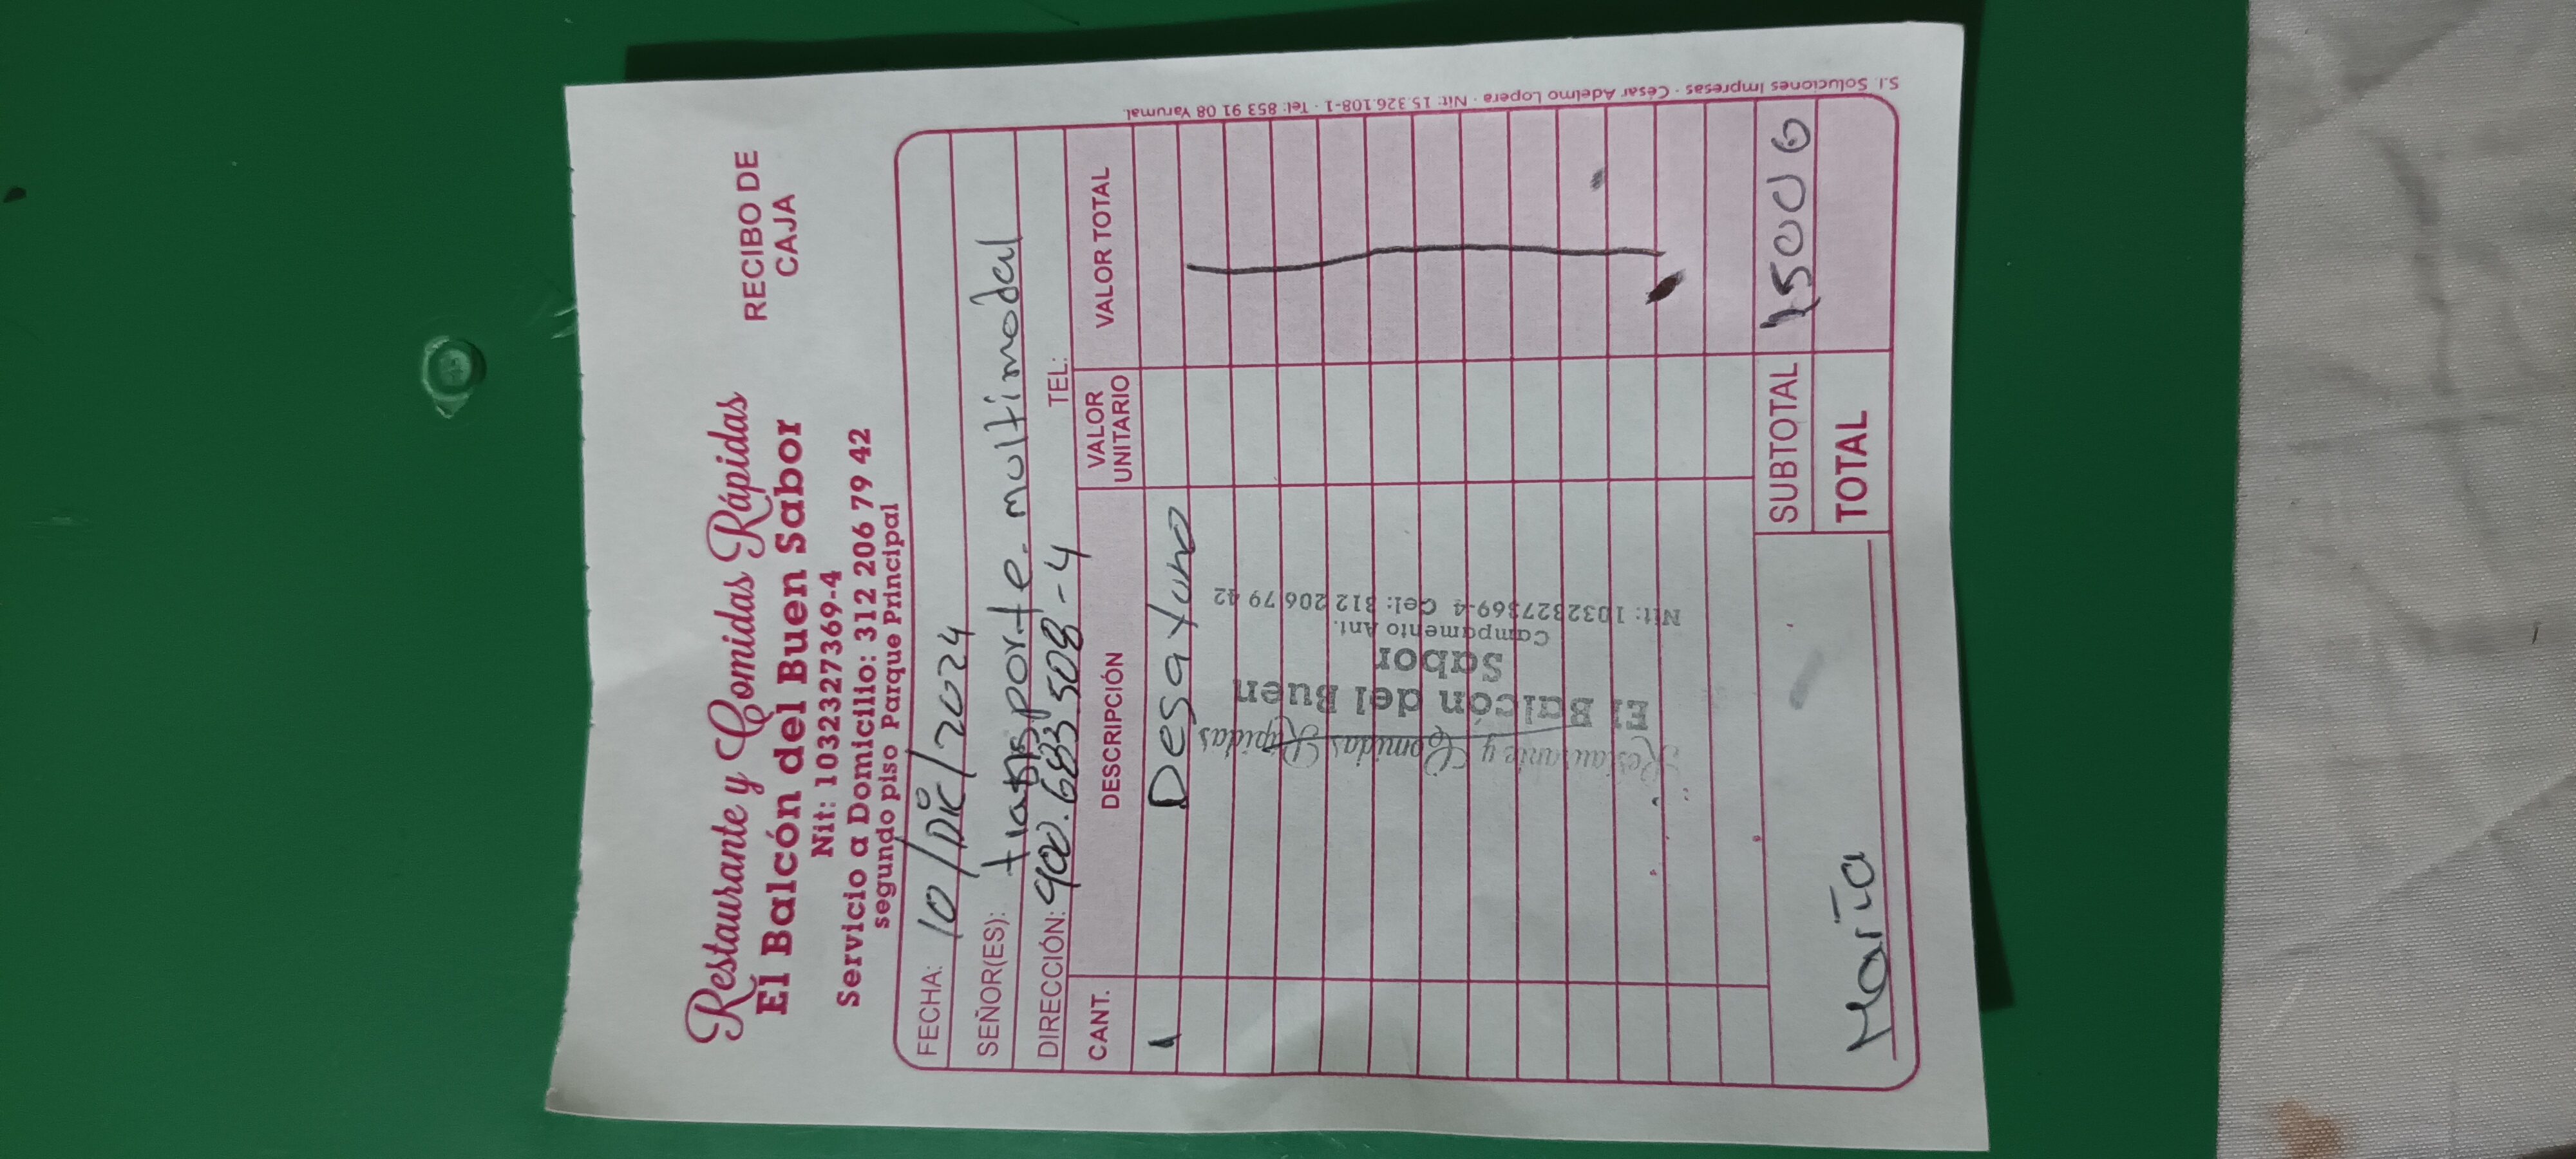 Restaurante y Comidas Rápidas
El Balcón del Buen Sabor
Nit: 1032327369-4
Servicio a Domicilio: 312 206 79 42
segundo piso Parque Principal
RECIBO DE
CAJA
FECHA: 10/Dic/2024
SEÑOR(ES): transporte. multimodal
DIRECCIÓN: 900.683.508-4 TEL:
CANT. DESCRIPCIÓN VALOR UNITARIO VALOR TOTAL
1 Desayuno
Restaurante y Comidas Rápidas
El Balcón del Buen
Sabor
Campamento Ant.
Nit: 1032327369-4 Cel: 312 206 79 42
SUBTOTAL 15000
TOTAL
Maria
S.I. Soluciones Impresas - César Adelmo Lopera - Nit: 15.326.108-1 - Tel: 853 91 08 Yarumal.